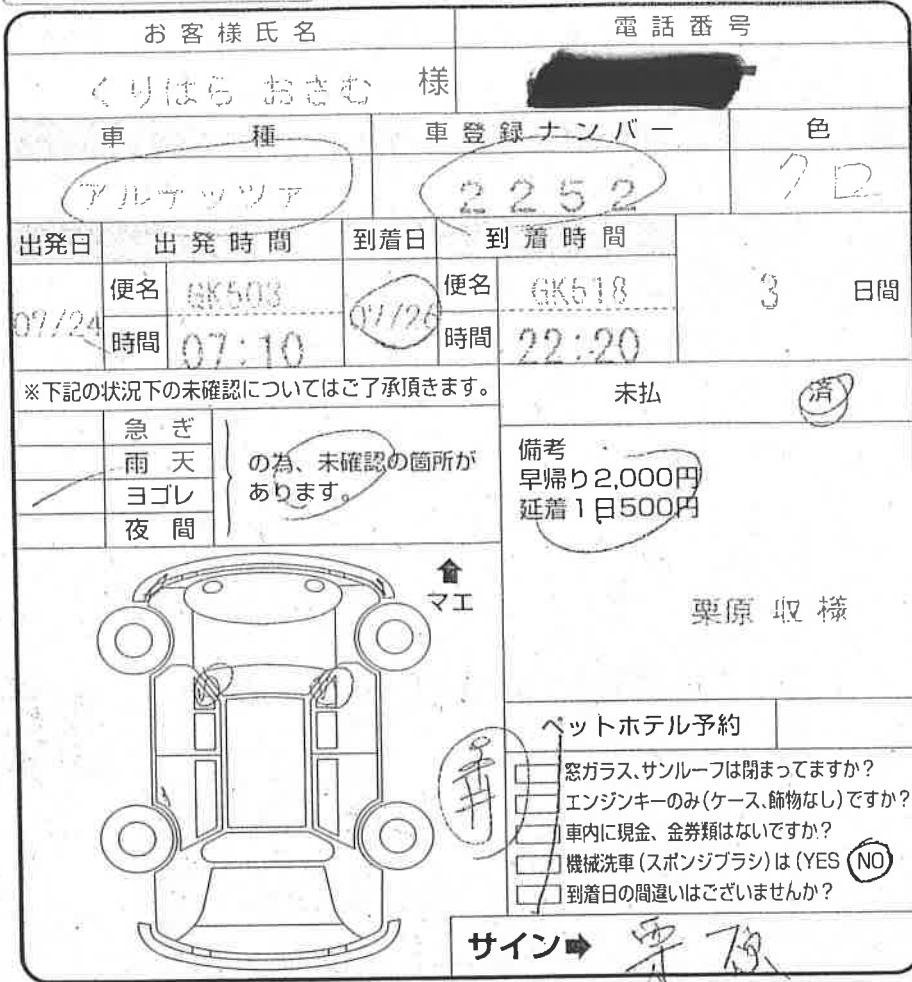 お客様氏名
電話番号
くりはら おさむ 様
車種
車登録ナンバー
色
アルテッツァ
2252
クロ
出発日
出発時間
到着日
到着時間
07/24
便名
GK503
時間
07:10
07/26
便名
GK518
時間
22:20
3 日間
※下記の状況下の未確認についてはご了承頂きます。
急ぎ
雨天
ヨゴレ
夜間
の為、未確認の箇所が
あります。
未払
済
備考
早帰り2,000円
延着1日500円
マエ
栗原 収 様
ペットホテル予約
窓ガラス、サンルーフは閉まってますか?
エンジンキーのみ(ケース、飾物なし)ですか?
車内に現金、金券類はないですか?
機械洗車(スポンジブラシ)は(YES NO)
到着日の間違いはございませんか?
サイン
栗原